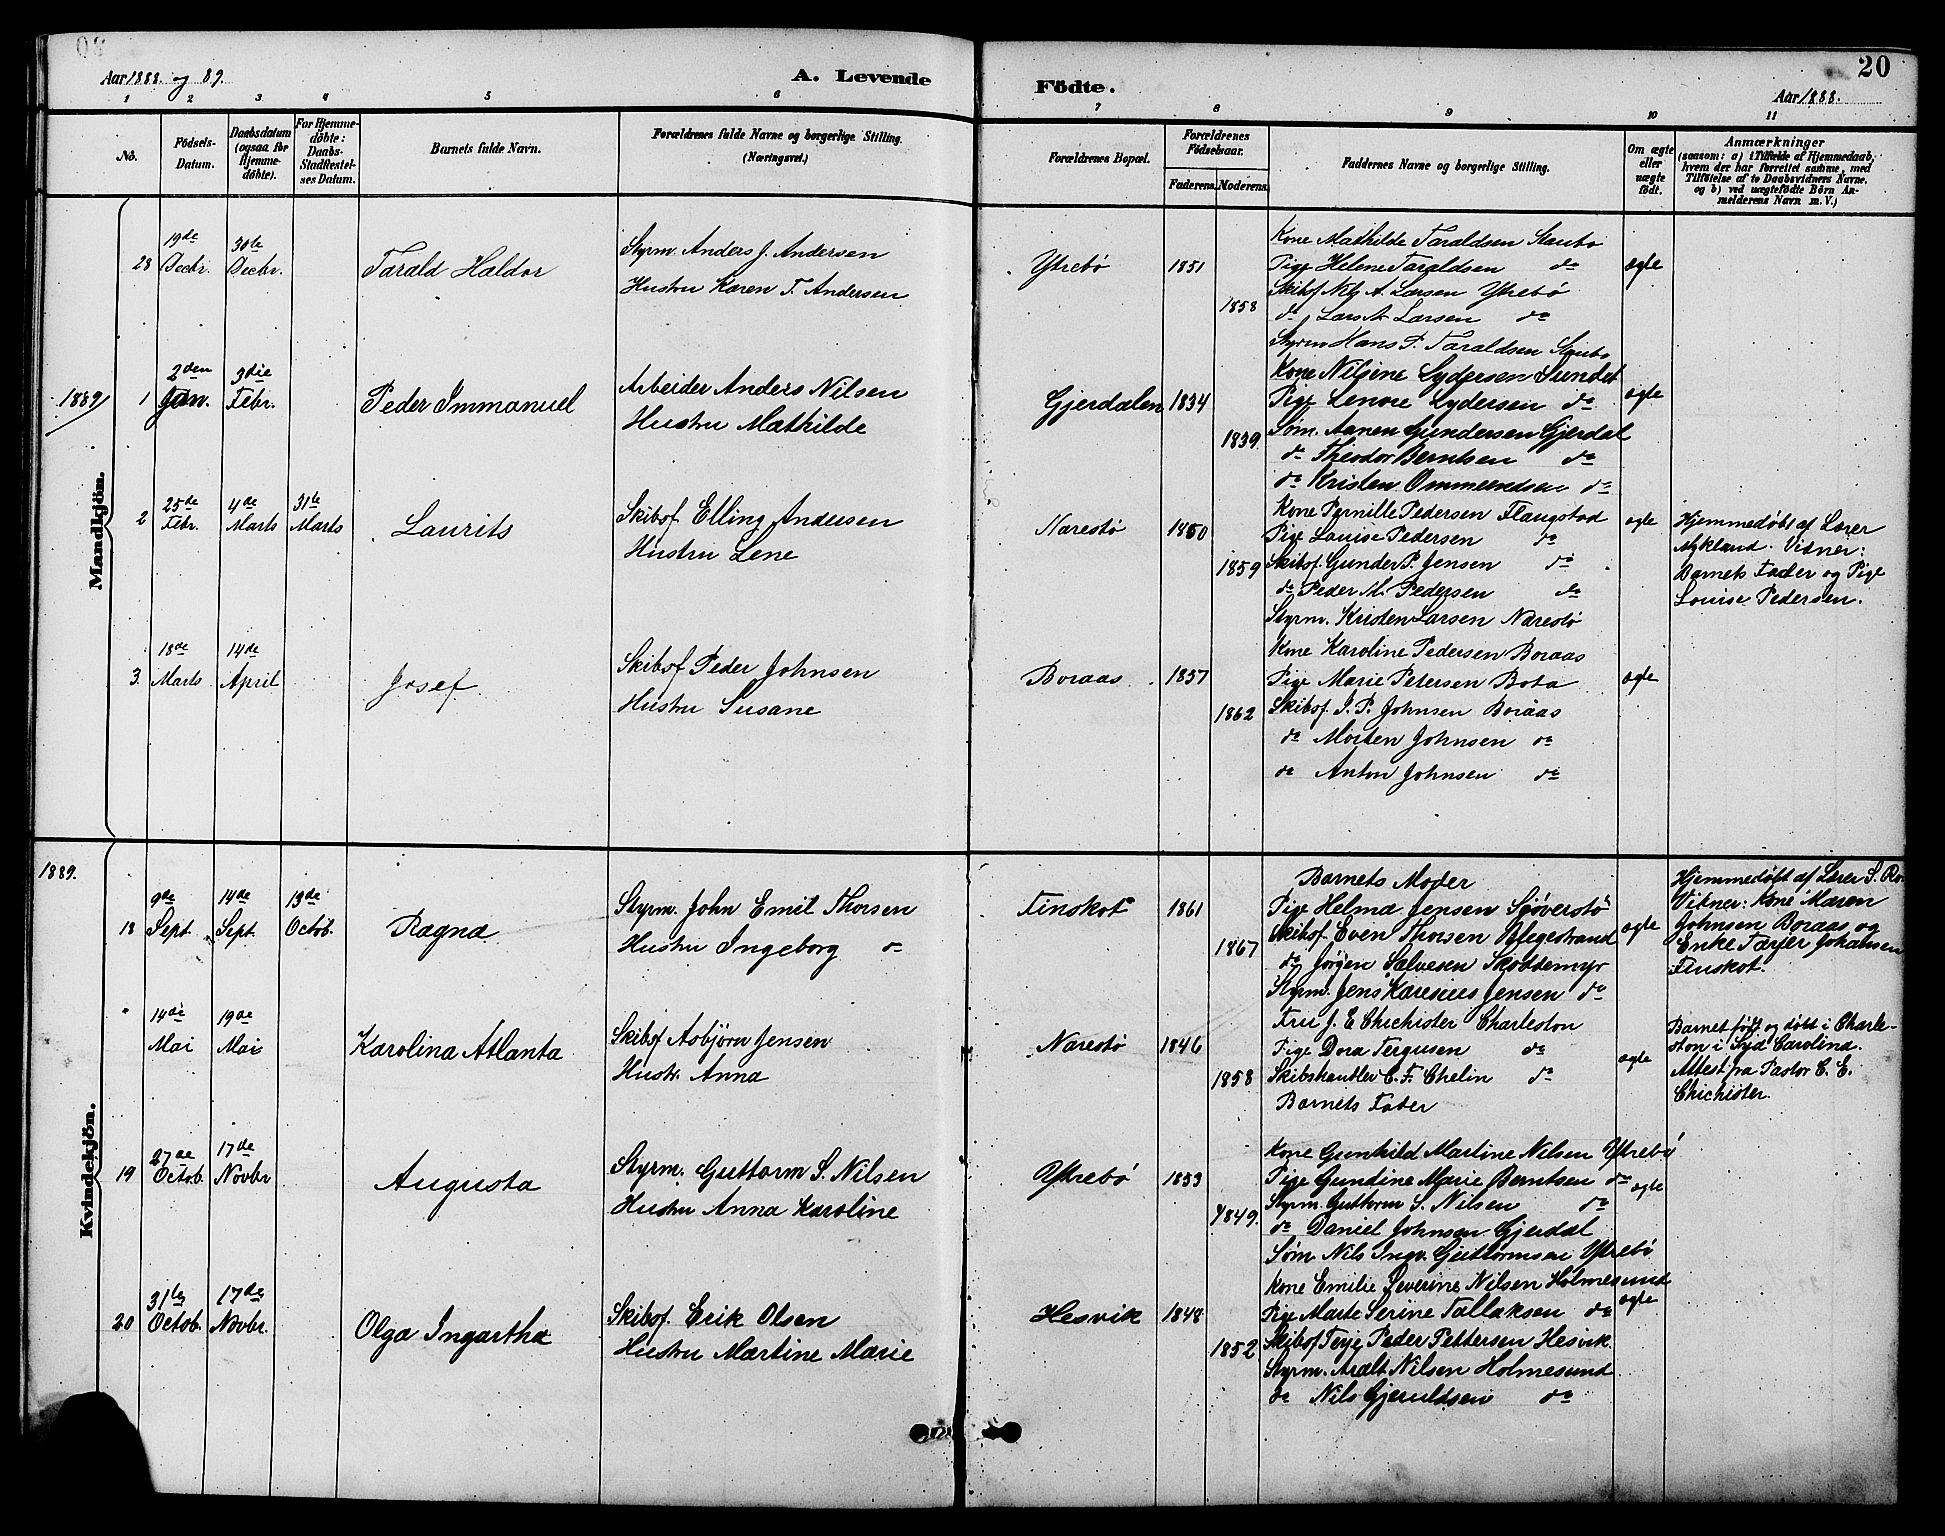 20
Aar 1888 og 89.
A. Levende
Födte.
Aar 1888.
1 2 3 4 5 6 7 8 9 10 11
No.
Födsels-
Datum.
Daabsdatum
(ogsaa for
Hjemme-
döbte).
For Hjemme-
döbte:
Daabs-
Stadfæstel-
ses Datum.
Barnets fulde Navn.
Forældrenes fulde Navne og borgerlige Stilling.
(Næringsvei.)
Forældrenes Bopæl.
Forældrenes
Födselsaar.
Faderens. Moderens.
Faddernes Navne og borgerlige Stilling.
Om ægte
eller
uægte
födt.
Anmærkninger
(saasom: a) i Tilfælde af Hjemmedaab,
hvem der har forrettet samme, med
Tilföielse af to Daabsvidners Navne,
og b) ved uægtefödte Börn An-
melderens Navn m. V.)
Mandkjön.
28
19de
Decbr.
30te
Decbr.
Tarald Haldor
Styrm. Anders J. Andersen
Hustru Karen T. Andersen
Ytrebö
1851
1858
Kone Mathilde Taraldsen Staubo
Pige Helene Taraldsen do
Skibsf Nils A. Larsen Ytrebö
do Lars A. Larsen do
Styrm Hans P. Taraldsen Staubo
ægte
1889
1
2den
Jan.
3die
Febr.
Peder Immanuel
Arbeider Anders Nilsen
Hustru Mathilde
Gjerdalen
1834
1839
Kone Nilsine Lydersen Sundet
Pige Lenore Lydersen do
Söm. Aanen Gundersen Gjerdal
do Theodor Berntsen do
do Kristen Ommundsen do
ægte
2
25de
Febr.
4de
Marts
31te
Marts
Laurits
Skibsf. Elling Andersen
Hustru Lene
Narestö
1850
1859
Kone Pernille Pedersen Flaugstad
Pige Louise Pedersen do
Skibsf. Gunder P. Jensen do
do Peder M. Pedersen do
Styrm. Kristen Larsen Narestö
ægte
Hjemmedöbt af Lærer
Mykland. Vidner:
Barnets Fader og Pige
Louise Pedersen.
3.
18de
Marts
14de
April
Josef
Skibsf Peder Johnsen
Hustru Susane
Boraas
1857
1862
Kone Karoline Pedersen Boraas
Pige Marie Petersen Bota
Skibsf. I. P. Johnsen Boraas
do Morten Johnsen do
do Anton Johnsen do
ægte
1889.
Kvindekjön.
18
9de
Sept.
14de
Sept.
13de
Octob.
Ragna
Styrm. John Emil Thorsen
Hustru Ingeborg do
Finskot
1861
1867
Barnets Moder
Pige Helma Jensen Sjöverstö
Skibsf. Even Thorsen Blegestrand
do Jörgen Salvesen Skottemyr
Styrm. Jens Karenius Jensen do
ægte
Hjemmedöbt af Lærer S. Ro
Vidner: Kone Maren
Johnsen Boraas og
Enke Tarjer Johansen
Finskot.
"
14de
Mai
19de
Mai
Karolina Atlanta
Skibsf Asbjörn Jensen
Hustr. Anna
Narestö
1846
1858
Fru J. E Chichister Charleston
Pige Dora Fergusen do
Skibshandler C. F. Chelin do
Barnets Fader
ægte
Barnet födt og döbt i Charle-
ston i Syd Carolina.
Attest fra Pastor C. E.
Chichister.
19
27de
Octob.
17de
Novbr
Augusta
Styrm. Guttorm S. Nilsen
Hustru Anna Karoline
Ytrebö
1853
1849.
Kone Gunhild Martine Nilsen Ytrebö
Pige Gundine Marie Berntsen do
Styrm. Guttorm S. Nilsen do
do Daniel Johnsen Gjerdal
Söm Nils Ingv. Guttormsen Ytrebö
ægte
20
31te
Octob.
17de
Novbr.
Olga Ingartha
Skibsf. Erik Olsen
Hustru Martine Marie
Hesvik
1848
1852
Kone Emilie Severine Nilsen Holmesund
Pige Marte Serine Tallaksen do
Skibsf Terje Peder Pettersen Hesvik
Styrm. Aralt Nilsen Holmesund
do Nils Gjeruldsen do
ægte